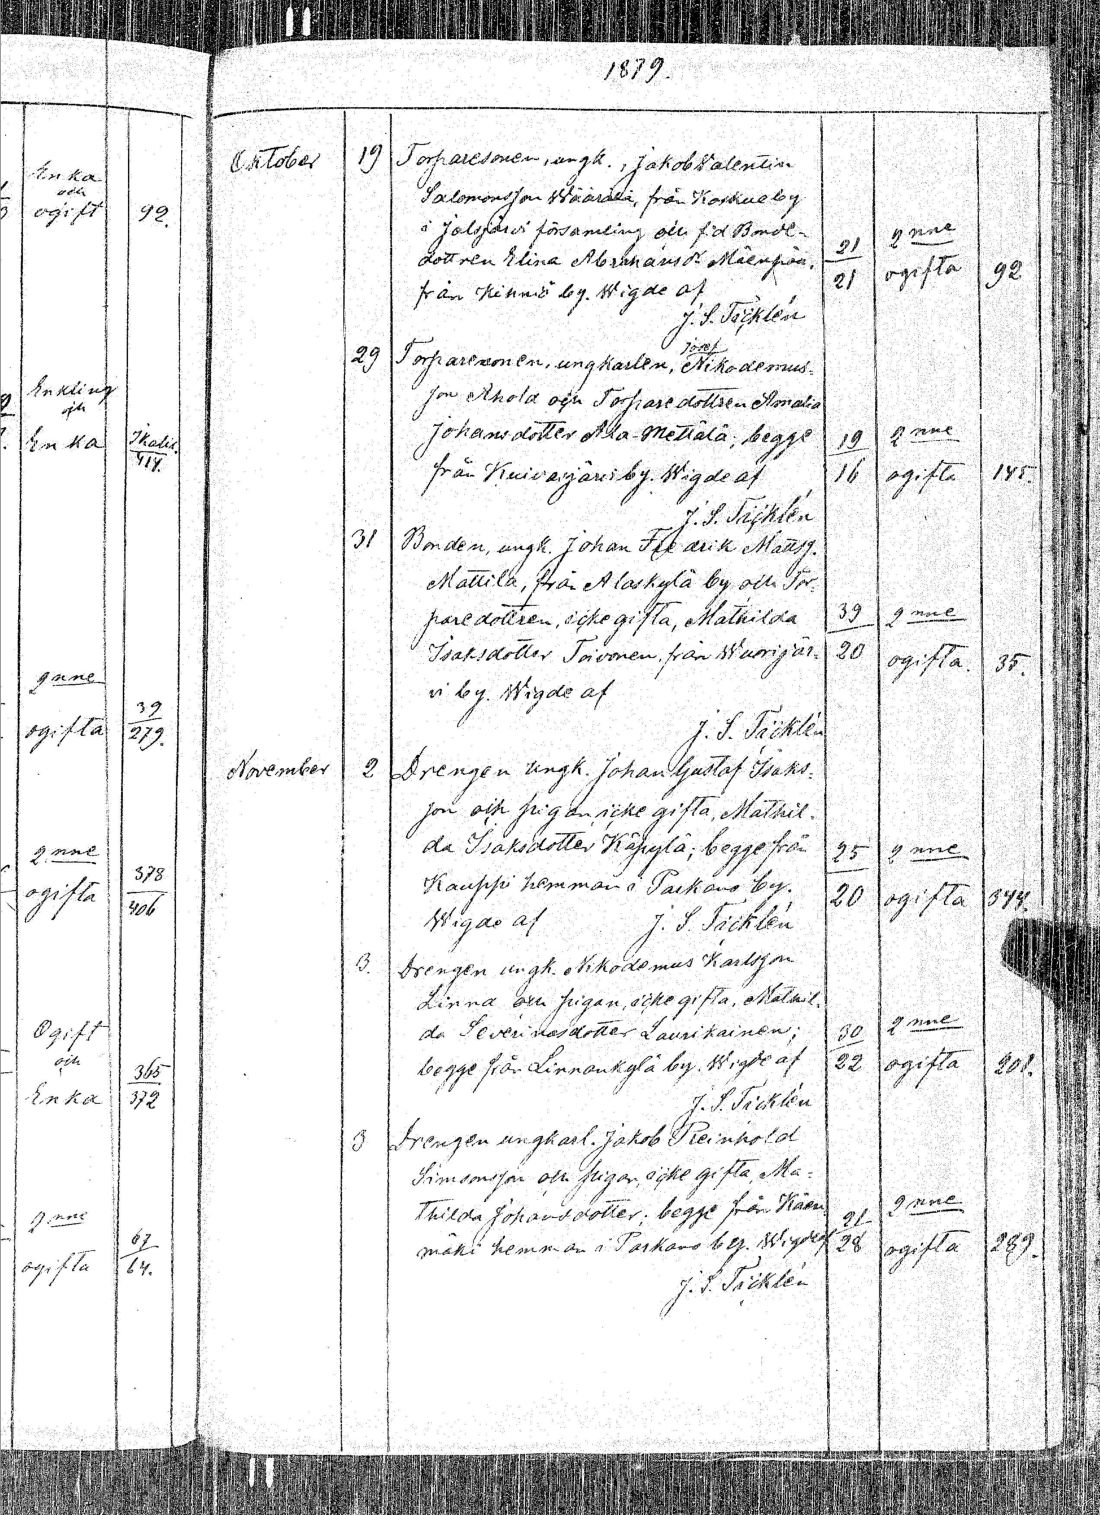 1879.
Enka
och
ogift 92.
Enkling
och
Enka Ikalis.
414.
2nne 39
ogifta 279.
2nne 378
ogifta 406
Ogift
och 365
Enka 372
2nne 67
ogifta 64.
Oktober 19 Torparesonen, ungk., Jakob Valentin
Salomonsson från Koskue by
i Jalasjärvi församling och f.d Bonde-
dottren Elina Abrahamsdr Mäenpää, 21 2nne
från Kihniö by. Wigde af 21 ogifta 92
J. S. Täcklén
29 Torparesonen, ungkarlen, Josef Nikodemus-
son Ahold och Torparedottren Amalia
Johansdotter Ala-Mettälä; begge 19 2nne
från Kuivasjärvi by. Wigde af 16 ogifta 145.
J. S. Täcklén
31 Bonden, ungk. Johan Fredrik Mattss.
Mattila, från Alaskylä by och Tor-
paredottren, icke gifta, Mathilda 39 2nne
Isaksdotter Toivonen, från Wuorijär- 20 ogifta. 35.
vi by. Wigde af
J. S. Täcklén
November 2 Drengen ungk. Johan Gustaf Isaks-
son och pigan, icke gifta, Mathil-
da Isaksdotter Käpylä; begge från 25 2nne
Kauppi hemman i Parkano by. 20 ogifta 344.
Wigde af J. S. Täcklén
3. Drengen ungk. Nikodemus Karlsson
Linna och pigan, icke gifta, Mathil-
da Severinasdotter Laurikainen; 30 2nne
begge från Linnankylä by. Wigde af 22 ogifta 201.
J. S. Täcklén
3 Drengen ungkarl. Jakob Reinhold
Simsonsson och pigan, icke gifta, Ma-
thilda Johansdotter; begge från Käen- 21 2nne
mäki hemman i Parkano by. Wigde af 28 ogifta 289.
J. S. Täcklén